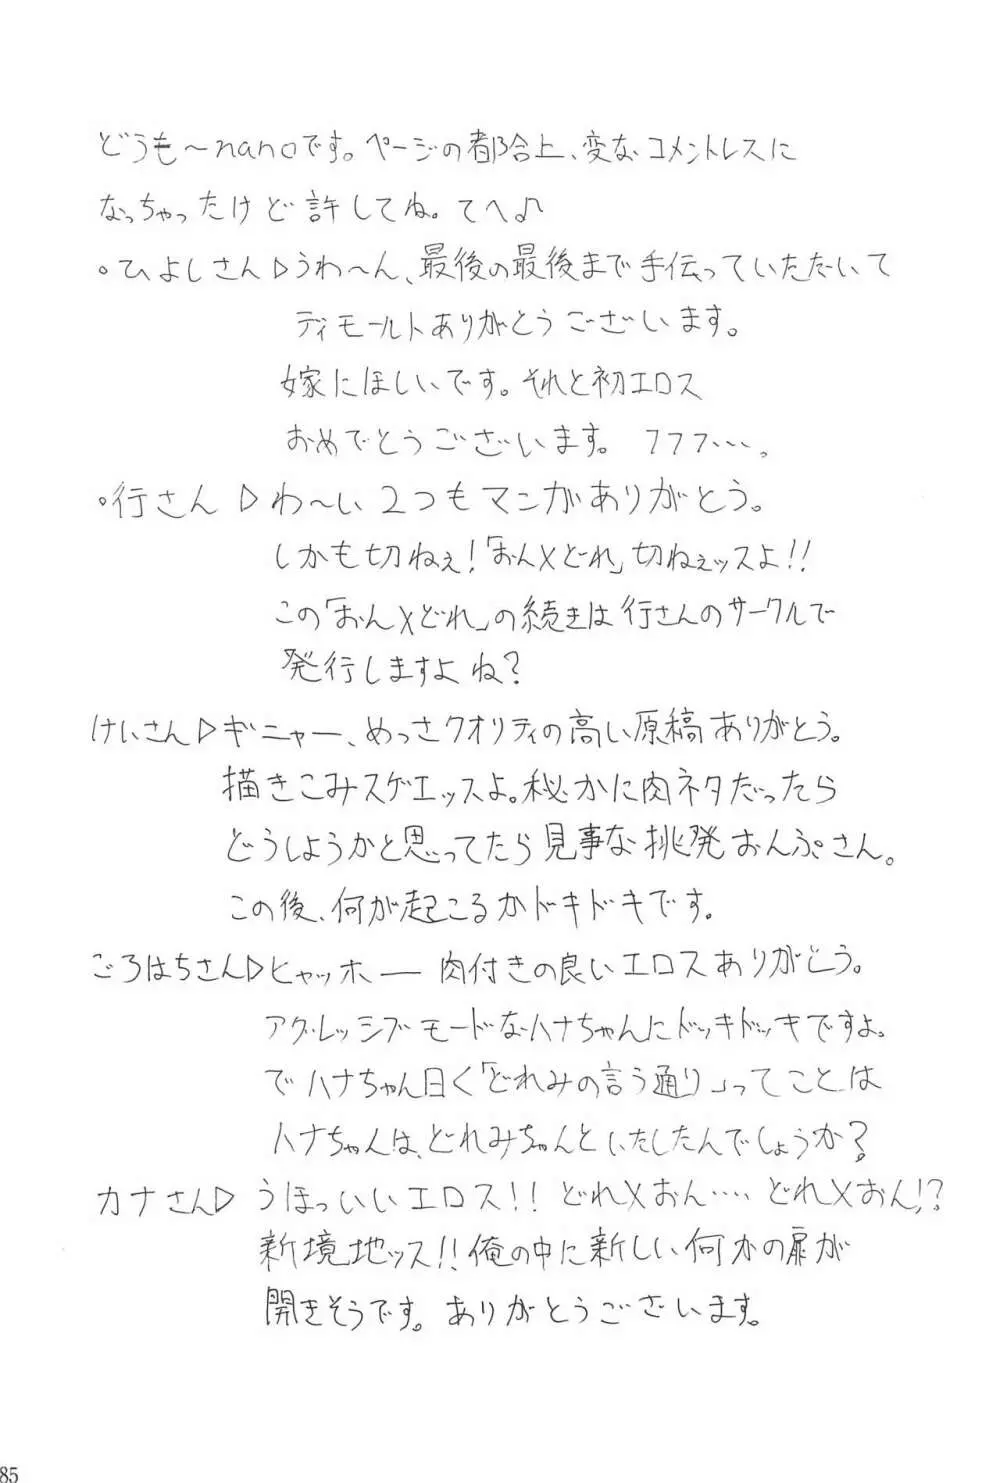 どうも〜nanoです。ページの都合上、変なコメントレスに
なっちゃったけど許してね。てへ♪
・ひよしさん▷うわ〜ん、最後の最後まで手伝っていただいて
ディモールトありがとうございます。
嫁にほしいです。それと初エロス
おめでとうございます。フフフ…。
・行さん▷わ〜い2つもマンガありがとう。
しかも切ねぇ!「おん×どれ」切ねぇッスよ!!
この「おん×どれ」の続きは行さんのサークルで
発行しますよね?
けいさん▷ギニャー、めっさクオリティの高い原稿ありがとう。
描きこみスゲエッスよ。秘かに肉ネタだったら
どうしようかと思ってたら見事な挑発おんぷさん。
この後、何が起こるかドキドキです。
ごろはちさん▷ヒャッホー肉付きの良いエロスありがとう。
アグレッシブモードなハナちゃんにドッキドッキですよ。
でハナちゃん曰く「どれみの言う通り」ってことは
ハナちゃんは、どれみちゃんといたしたんでしょうか?
カナさん▷うほっいいエロス!!どれ×おん….どれ×おん!?
新境地ッス!!俺の中に新しい何かの扉が
開きそうです。ありがとうございます。
85